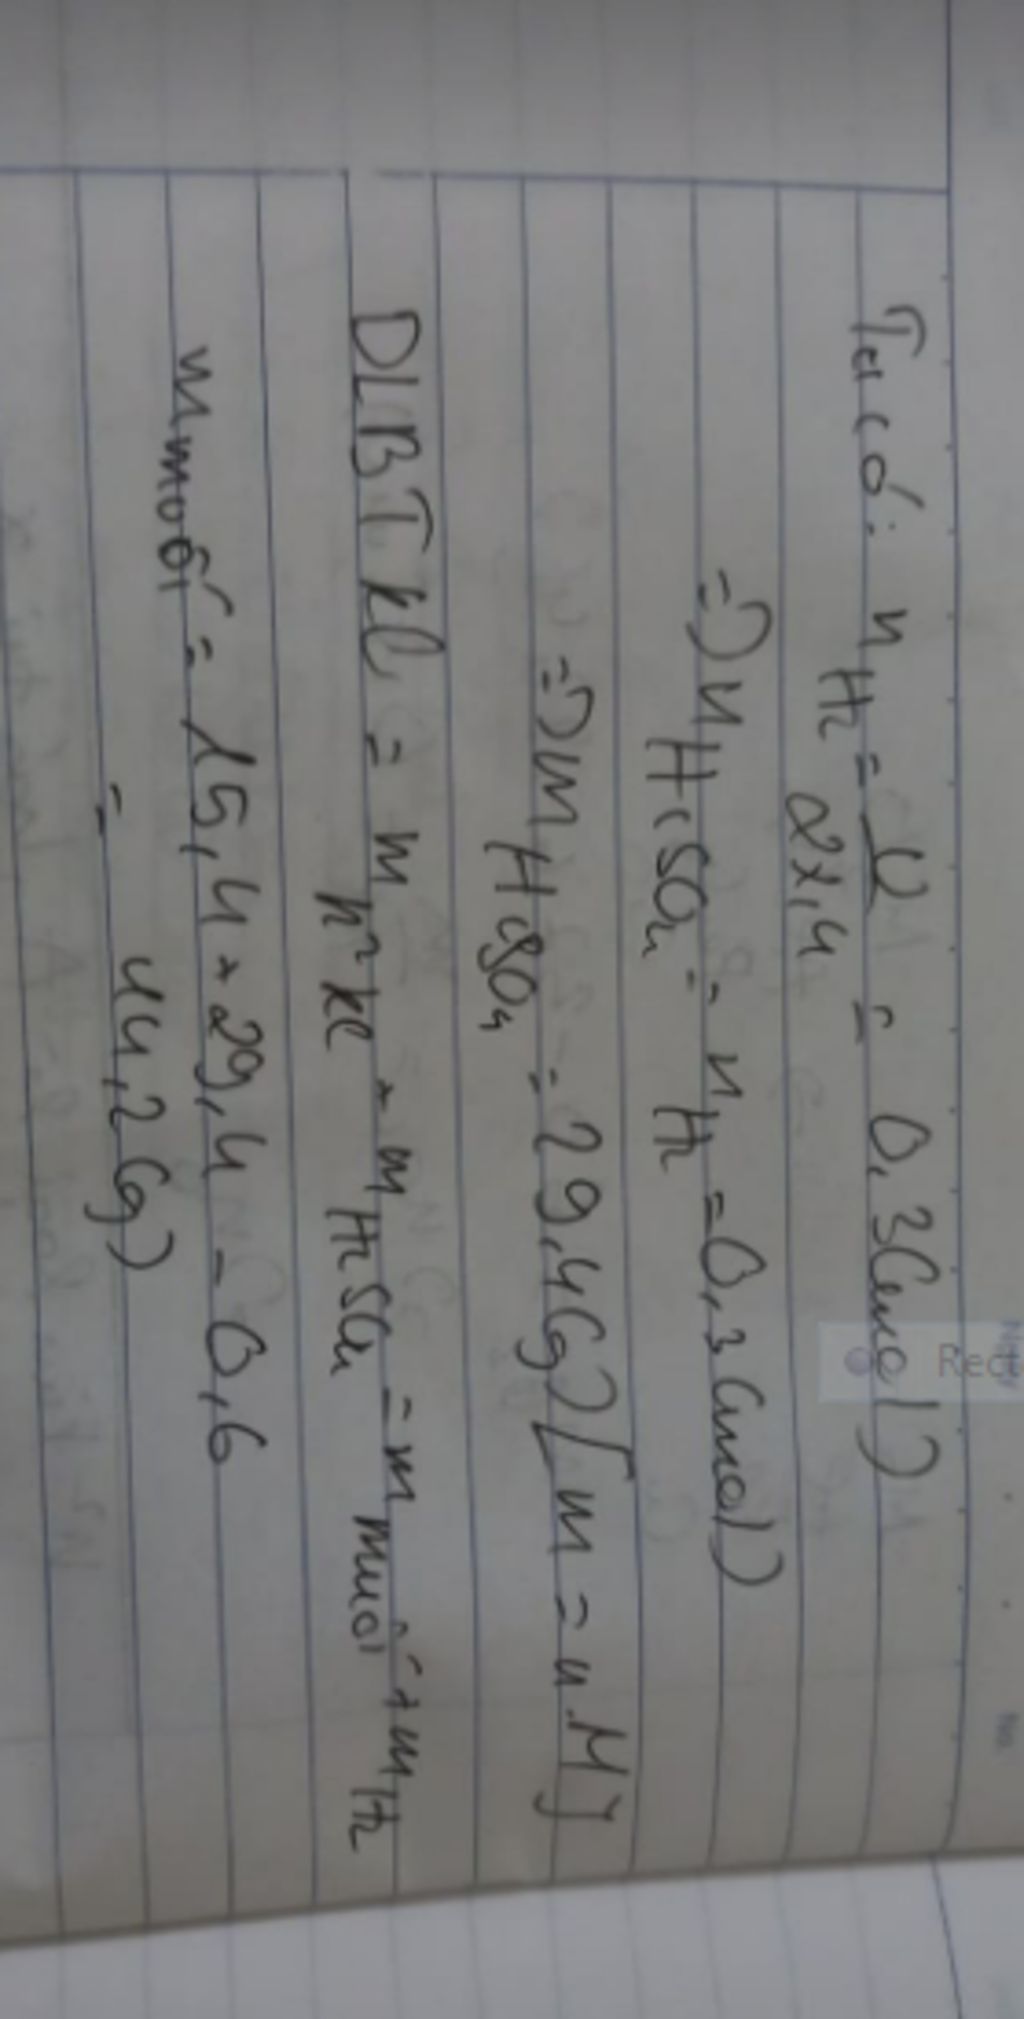 Ta có: n H2 = V / 22,4 = 0,3 (mol)
=> n H2SO4 = n H2 = 0,3 (mol)
=> m H2SO4 = 29,4 (g) [m = n.M]
DLBTKL = m h² kl + m H2SO4 = m muối + m H2
m muối = 15,4 + 29,4 - 0,6
= 44,2 (g)
Rect
No.